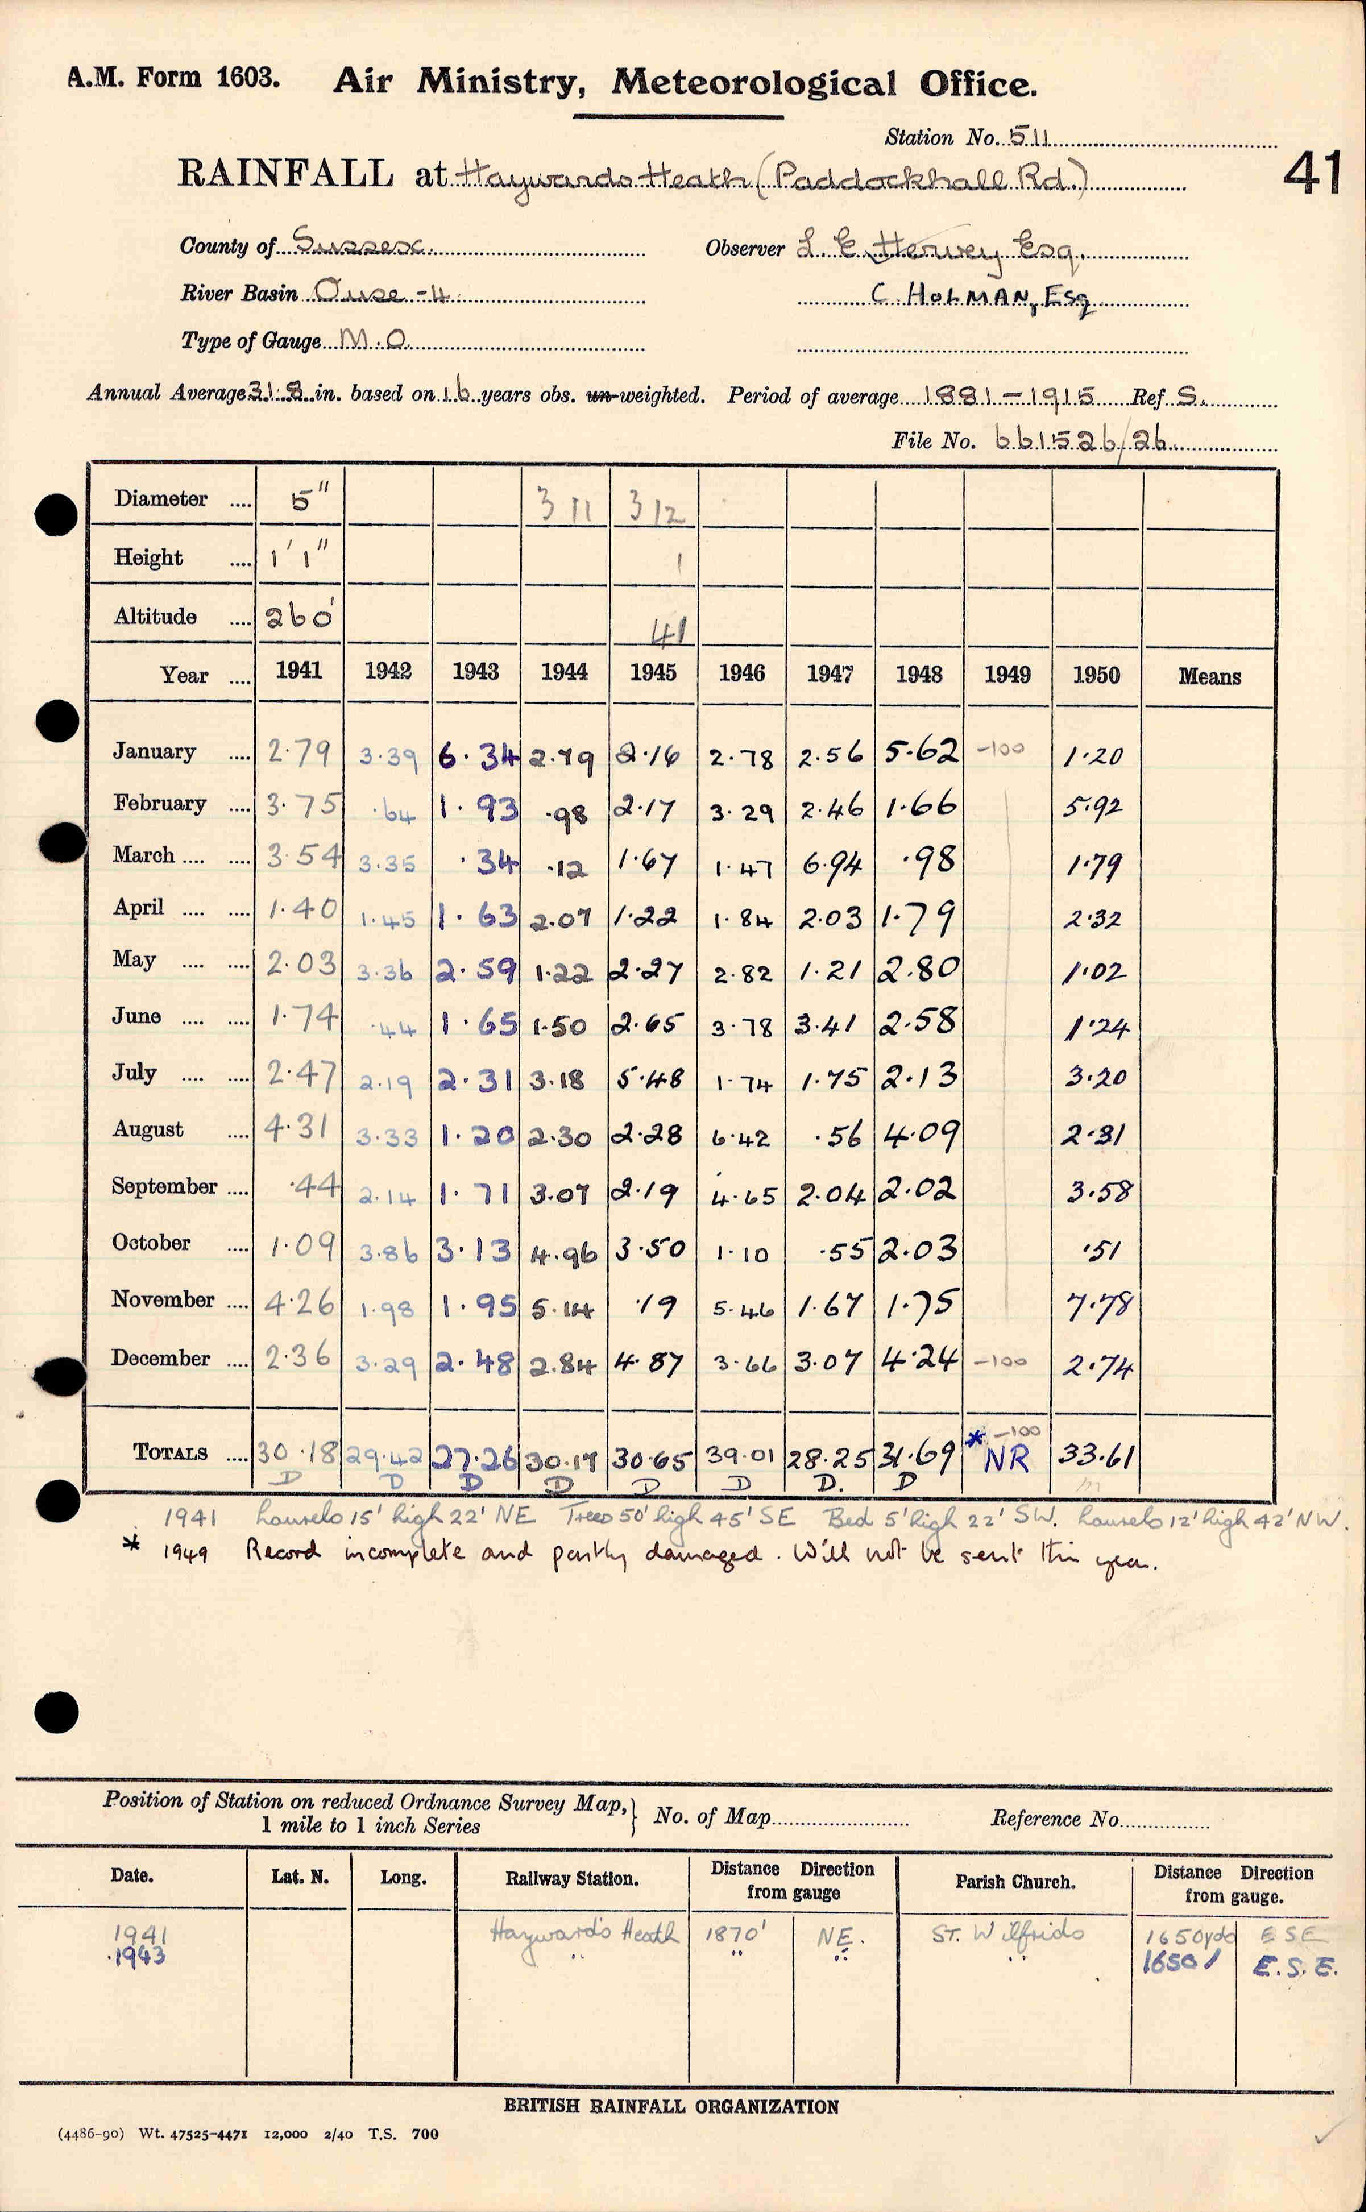 A.M. Form 1603. Air Ministry, Meteorological Office.
Station No. 511
41
RAINFALL at Haywards Heath (Paddockhall Rd.)
County of Sussex. Observer L. E. Hervey Esq.
River Basin Ouse - 4 C. HOLMAN, Esq
Type of Gauge M.O.
Annual Average 31.8 in. based on 16 years obs. un-weighted. Period of average 1881-1915 Ref S.
File No. 661526/26
Diameter .... 5" 3 11 3 12
Height .... 1' 1" 1
Altitude .... 260' 41
Year .... 1941 1942 1943 1944 1945 1946 1947 1948 1949 1950 Means
January .... 2.79 3.39 6.34 2.79 2.16 2.78 2.56 5.62 -100 1.20
February .... 3.75 .64 1.93 .98 2.17 3.29 2.46 1.66 5.92
March .... .... 3.54 3.35 .34 .12 1.67 1.47 6.94 .98 1.79
April .... .... 1.40 1.45 1.63 2.07 1.22 1.84 2.03 1.79 2.32
May .... .... 2.03 3.36 2.59 1.22 2.27 2.82 1.21 2.80 1.02
June .... .... 1.74 .44 1.65 1.50 2.65 3.78 3.41 2.58 1.24
July .... .... 2.47 2.19 2.31 3.18 5.48 1.74 1.75 2.13 3.20
August .... 4.31 3.33 1.20 2.30 2.28 6.42 .56 4.09 2.31
September .... .44 2.14 1.71 3.07 2.19 4.65 2.04 2.02 3.58
October .... 1.09 3.86 3.13 4.96 3.50 1.10 .55 2.03 .51
November .... 4.26 1.98 1.95 5.14 .19 5.46 1.67 1.75 7.78
December .... 2.36 3.29 2.48 2.84 4.87 3.66 3.07 4.24 -100 2.74
-100
TOTALS .... 30.18 29.42 27.26 30.17 30.65 39.01 28.25 31.69 * NR 33.61
D D D D D D D. D
1941 Laurels 15' high 22' NE Trees 50' high 45' SE Bed 5' high 22' SW. Laurels 12' high 42' NW.
* 1949 Record incomplete and partly damaged. Will not be sent this year.
Position of Station on reduced Ordnance Survey Map, } No. of Map Reference No.
1 mile to 1 inch Series
Date. Lat. N. Long. Railway Station. Distance Direction from gauge Parish Church. Distance Direction from gauge.
1941 Hayward's Heath 1870' NE. ST. Wilfrids 1650yds ESE
1943 " " " " 1650 E.S.E.
BRITISH RAINFALL ORGANIZATION
(4486-90) Wt. 47525-4471 12,000 2/40 T.S. 700